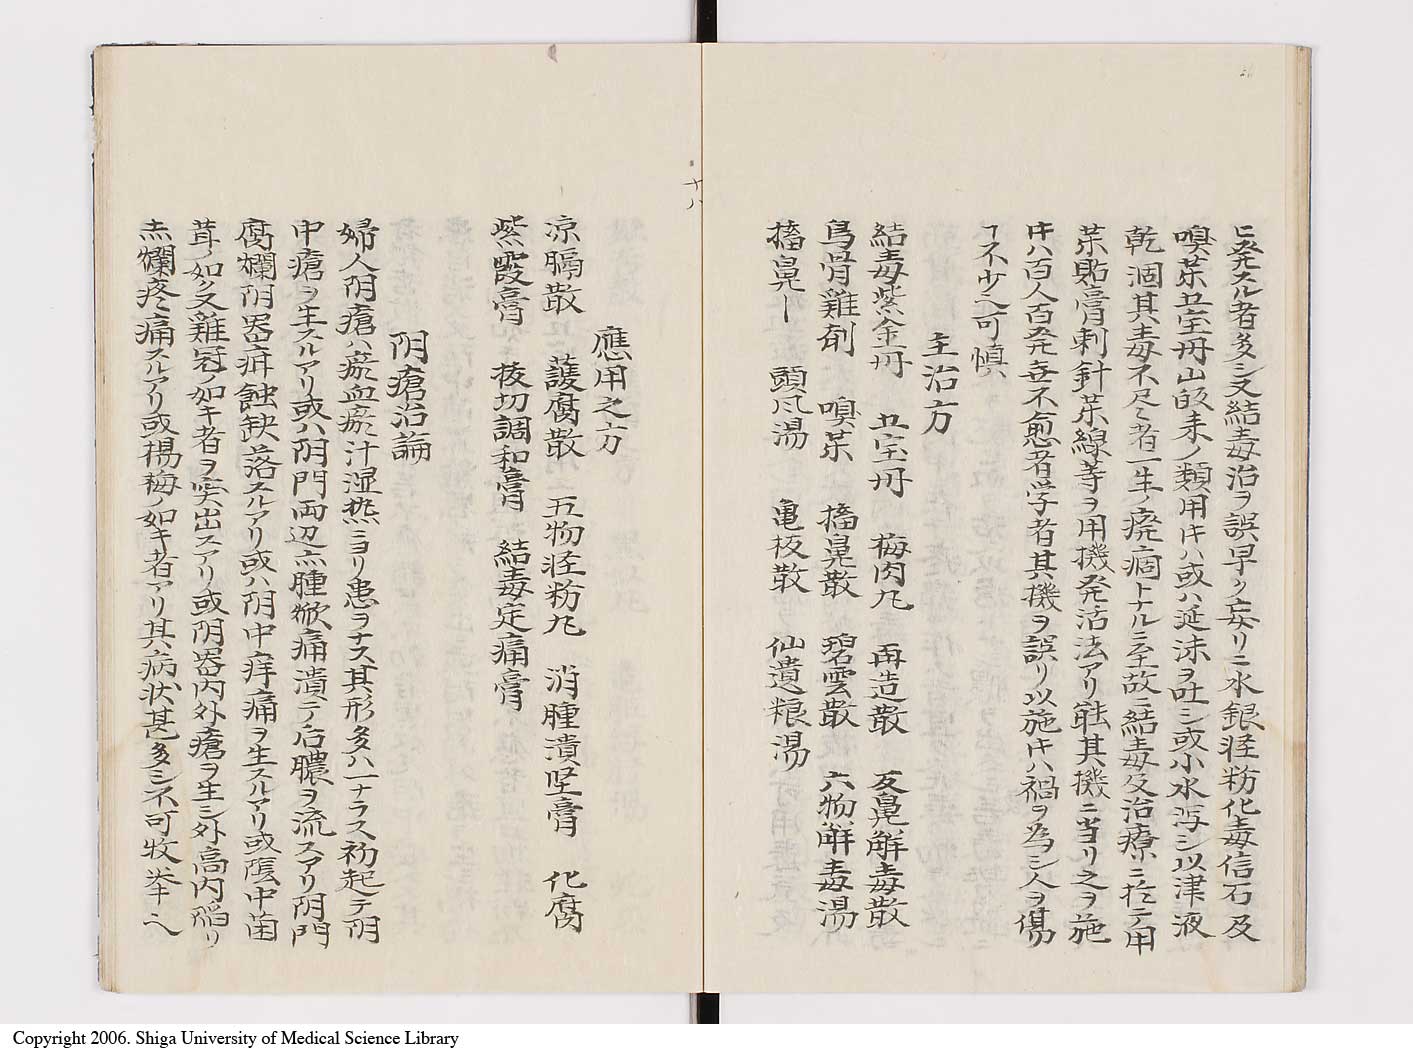 ニ発スル者多シ又結毒治ヲ誤早ク妄リニ水銀軽粉化毒信石及
嗅茶五宝丹山帰来ノ類用キハ或ハ延沫ヲ吐シ或小水瀉シ以津液
乾涸其毒不尽者一生ノ廃痼トナルニ至故ニ結毒及治療ニ於テ用
茶貼膏刺針茶線等ヲ用機発活法アリ能其機ニ当リ之ヲ施
キハ百人百発無不愈者学者其機ヲ誤リ以施キハ禍ヲ為シ人ヲ傷
ヿ不少之可慎
主治方
結毒紫金丹 五宝丹 梅肉丸 再造散 反鼻解毒散
烏骨雞剤 嗅茶 搐鼻散 碧雲散 六物解毒湯
搐鼻ー 頭風湯 亀板散 仙遺粮湯
十八
應用之方
凉膈散 護腐散 五物軽粉丸 消腫潰堅膏 化腐
紫霞膏 拔切調和膏 結毒定痛膏
阴瘡治論
婦人阴瘡ハ瘀血瘀汁湿熱ニヨリ患ヲナス其形多ハ一ナラス初起テ阴
中瘡ヲ生スルアリ或ハ阴門両辺赤腫焮痛潰テ后膿ヲ流スアリ阴門
腐爛阴器疳蝕缺落スルアリ或ハ阴中痒痛ヲ生スルアリ或陰中菌
茸ノ如ク又雞冠ノ如キ者ヲ突出スアリ或阴器内外瘡ヲ生シ外高内陷リ
赤爛疼痛スルアリ或楊梅ノ如キ者アリ其病状甚多シ不可枚挙ヘ